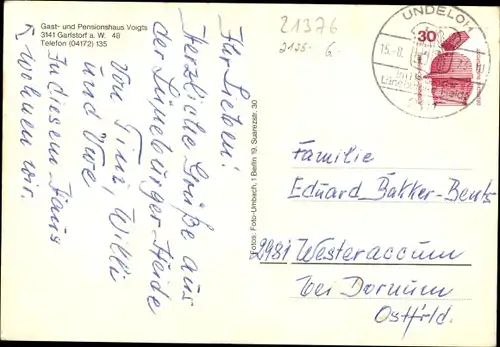 Gast- und Pensionshaus Voigts
3141 Garlstorf a. W. 48
Telefon (04172) 135
Ihr Lieben!
Herzliche Grüße aus
der Lüneburger-Heide
Von Tini, Willi
und Uwe
In diesem Haus
wohnen wir.
Fotos: Foto-Umbach, 1 Berlin 19, Suarezstr. 30
21376
2125.- 6.-
UNDELOH
15.-8.
30
Familie
Eduard Bakker-Bents
2981 Westeraccum
bei Dornum
Ostfrld.